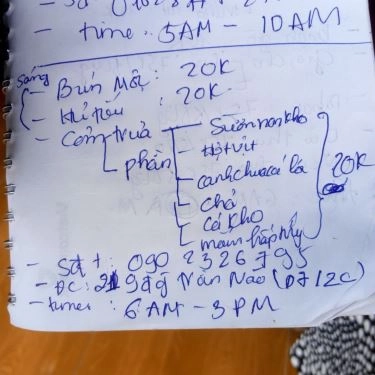 time: 5AM - 10AM
Sáng
- Bún Mọc: 20K
- Hủ tiếu: 20K
- Cơm trưa
phần
Sườn non kho
thịt vịt
canh chua cá lá
chả
cá kho
mắm hấp
20K
- Sđt: 090 2326795
- ĐC: Trần Não (D7/2C)
- times: 6AM - 3PM